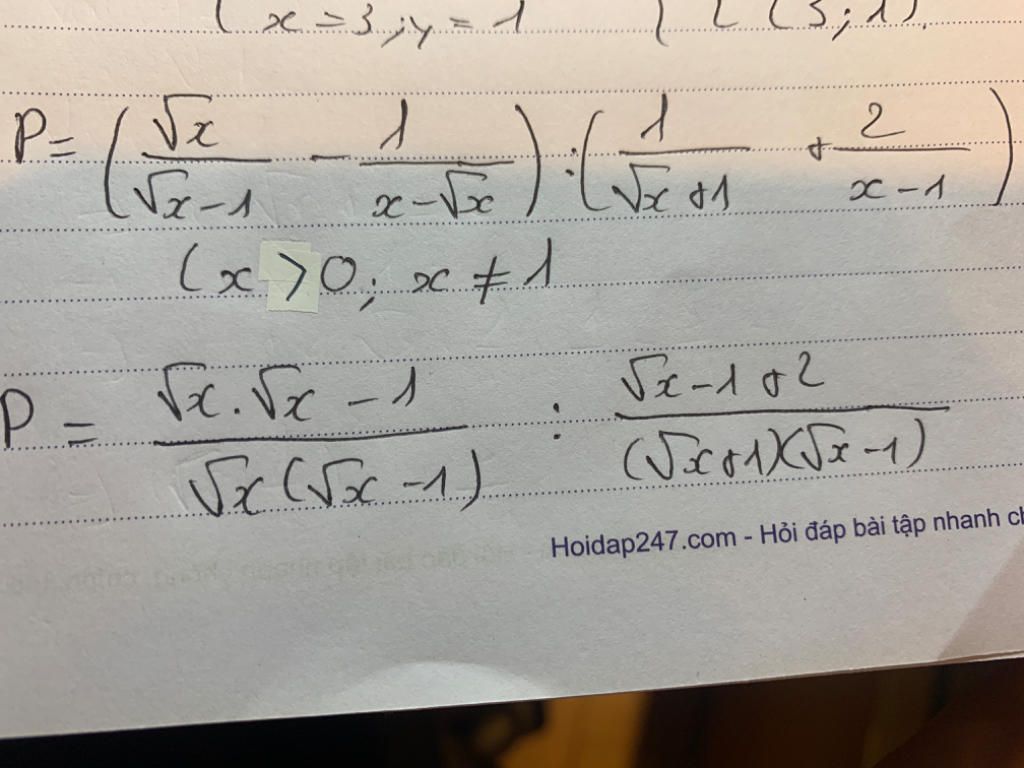 ( x = 3 ; y = 1 ( [ (3 ; 1).
P = (√x / (√x - 1) - 1 / (x - √x)) : (1 / (√x + 1) + 2 / (x - 1))
(x > 0 ; x ≠ 1
P = (√x . √x - 1) / (√x (√x - 1)) : (√x - 1 + 2) / ((√x + 1)(√x - 1))
Hoidap247.com - Hỏi đáp bài tập nhanh